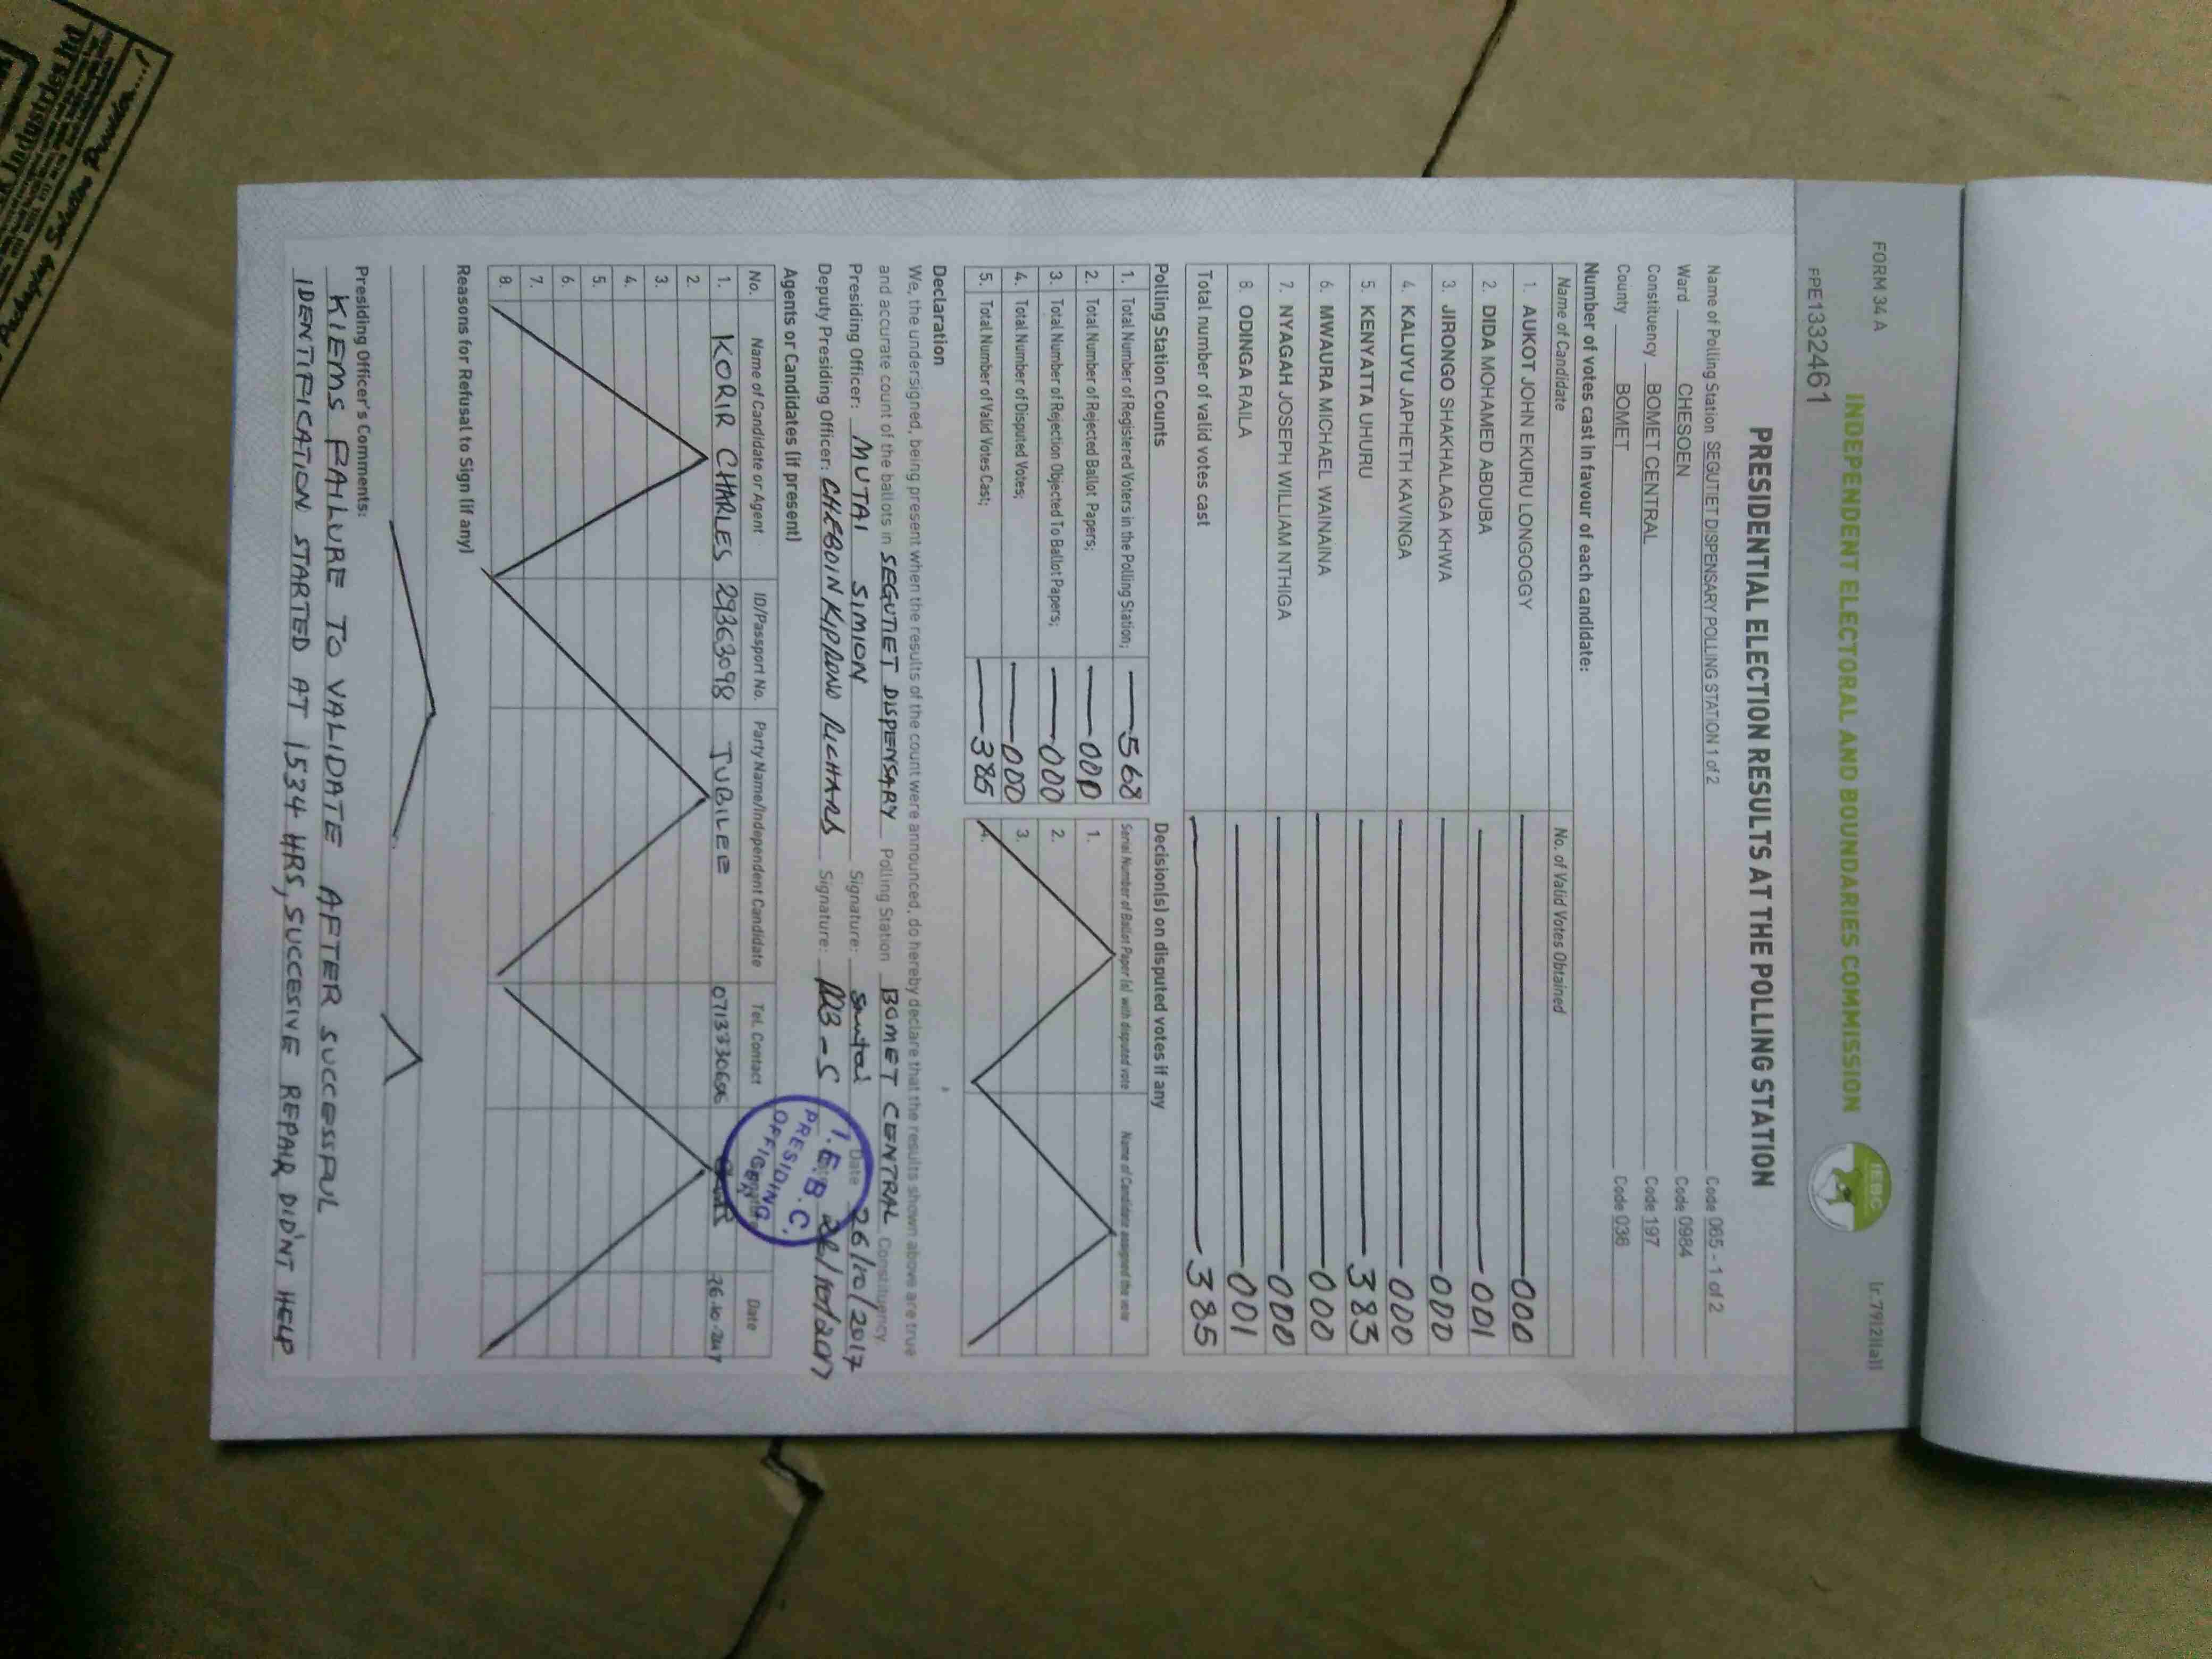 FORM 34 A
(r.79(2)(a))
INDEPENDENT ELECTORAL AND BOUNDARIES COMMISSION
IEBC
PPE1332461
PRESIDENTIAL ELECTION RESULTS AT THE POLLING STATION
Name of Polling Station SEGUTIET DISPENSARY POLLING STATION 1 of 2 Code 065 - 1 of 2
Ward CHESOEN Code 0984
Constituency BOMET CENTRAL Code 197
County BOMET Code 036
Number of votes cast in favour of each candidate:
Name of Candidate No. of Valid Votes Obtained
1. AUKOT JOHN EKURU LONGOGGY 000
2. DIDA MOHAMED ABDUBA 001
3. JIRONGO SHAKHALAGA KHWA 000
4. KALUYU JAPHETH KAVINGA 000
5. KENYATTA UHURU 383
6. MWAURA MICHAEL WAINAINA 000
7. NYAGAH JOSEPH WILLIAM NTHIGA 000
8. ODINGA RAILA 001
Total number of valid votes cast 385
Polling Station Counts
1. Total Number of Registered Voters in the Polling Station; 568
2. Total Number of Rejected Ballot Papers; 000
3. Total Number of Rejection Objected To Ballot Papers; 000
4. Total Number of Disputed Votes; 000
5. Total Number of Valid Votes Cast; 385
Decision(s) on disputed votes if any
Serial Number of Ballot Paper (s) with disputed vote Name of Candidate assigned the vote
1.
2.
3.
4.
Declaration
We, the undersigned, being present when the results of the count were announced, do hereby declare that the results shown above are true
and accurate count of the ballots in SEGUTIET DISPENSARY Polling Station BOMET CENTRAL Constituency.
Presiding Officer: MUTAI SIMION Signature: Date 26/10/2017
Deputy Presiding Officer: CHEBOIN KIPRONO RICHARD Signature: 26/10/2017
I.E.B.C.
PRESIDING
OFFICER
Agents or Candidates (if present)
No. Name of Candidate or Agent ID/Passport No. Party Name/Independent Candidate Tel. Contact Date
1. KORIR CHARLES 29363098 JUBILEE 26.10.2017
2.
3.
4.
5.
6.
7.
8.
Reasons for Refusal to Sign (if any)
Presiding Officer's Comments:
KIEMS FAILURE TO VALIDATE AFTER SUCCESSFUL
IDENTIFICATION STARTED AT 1534 HRS, SUCCESIVE REPAIR DID'NT HELP
Industries Ltd